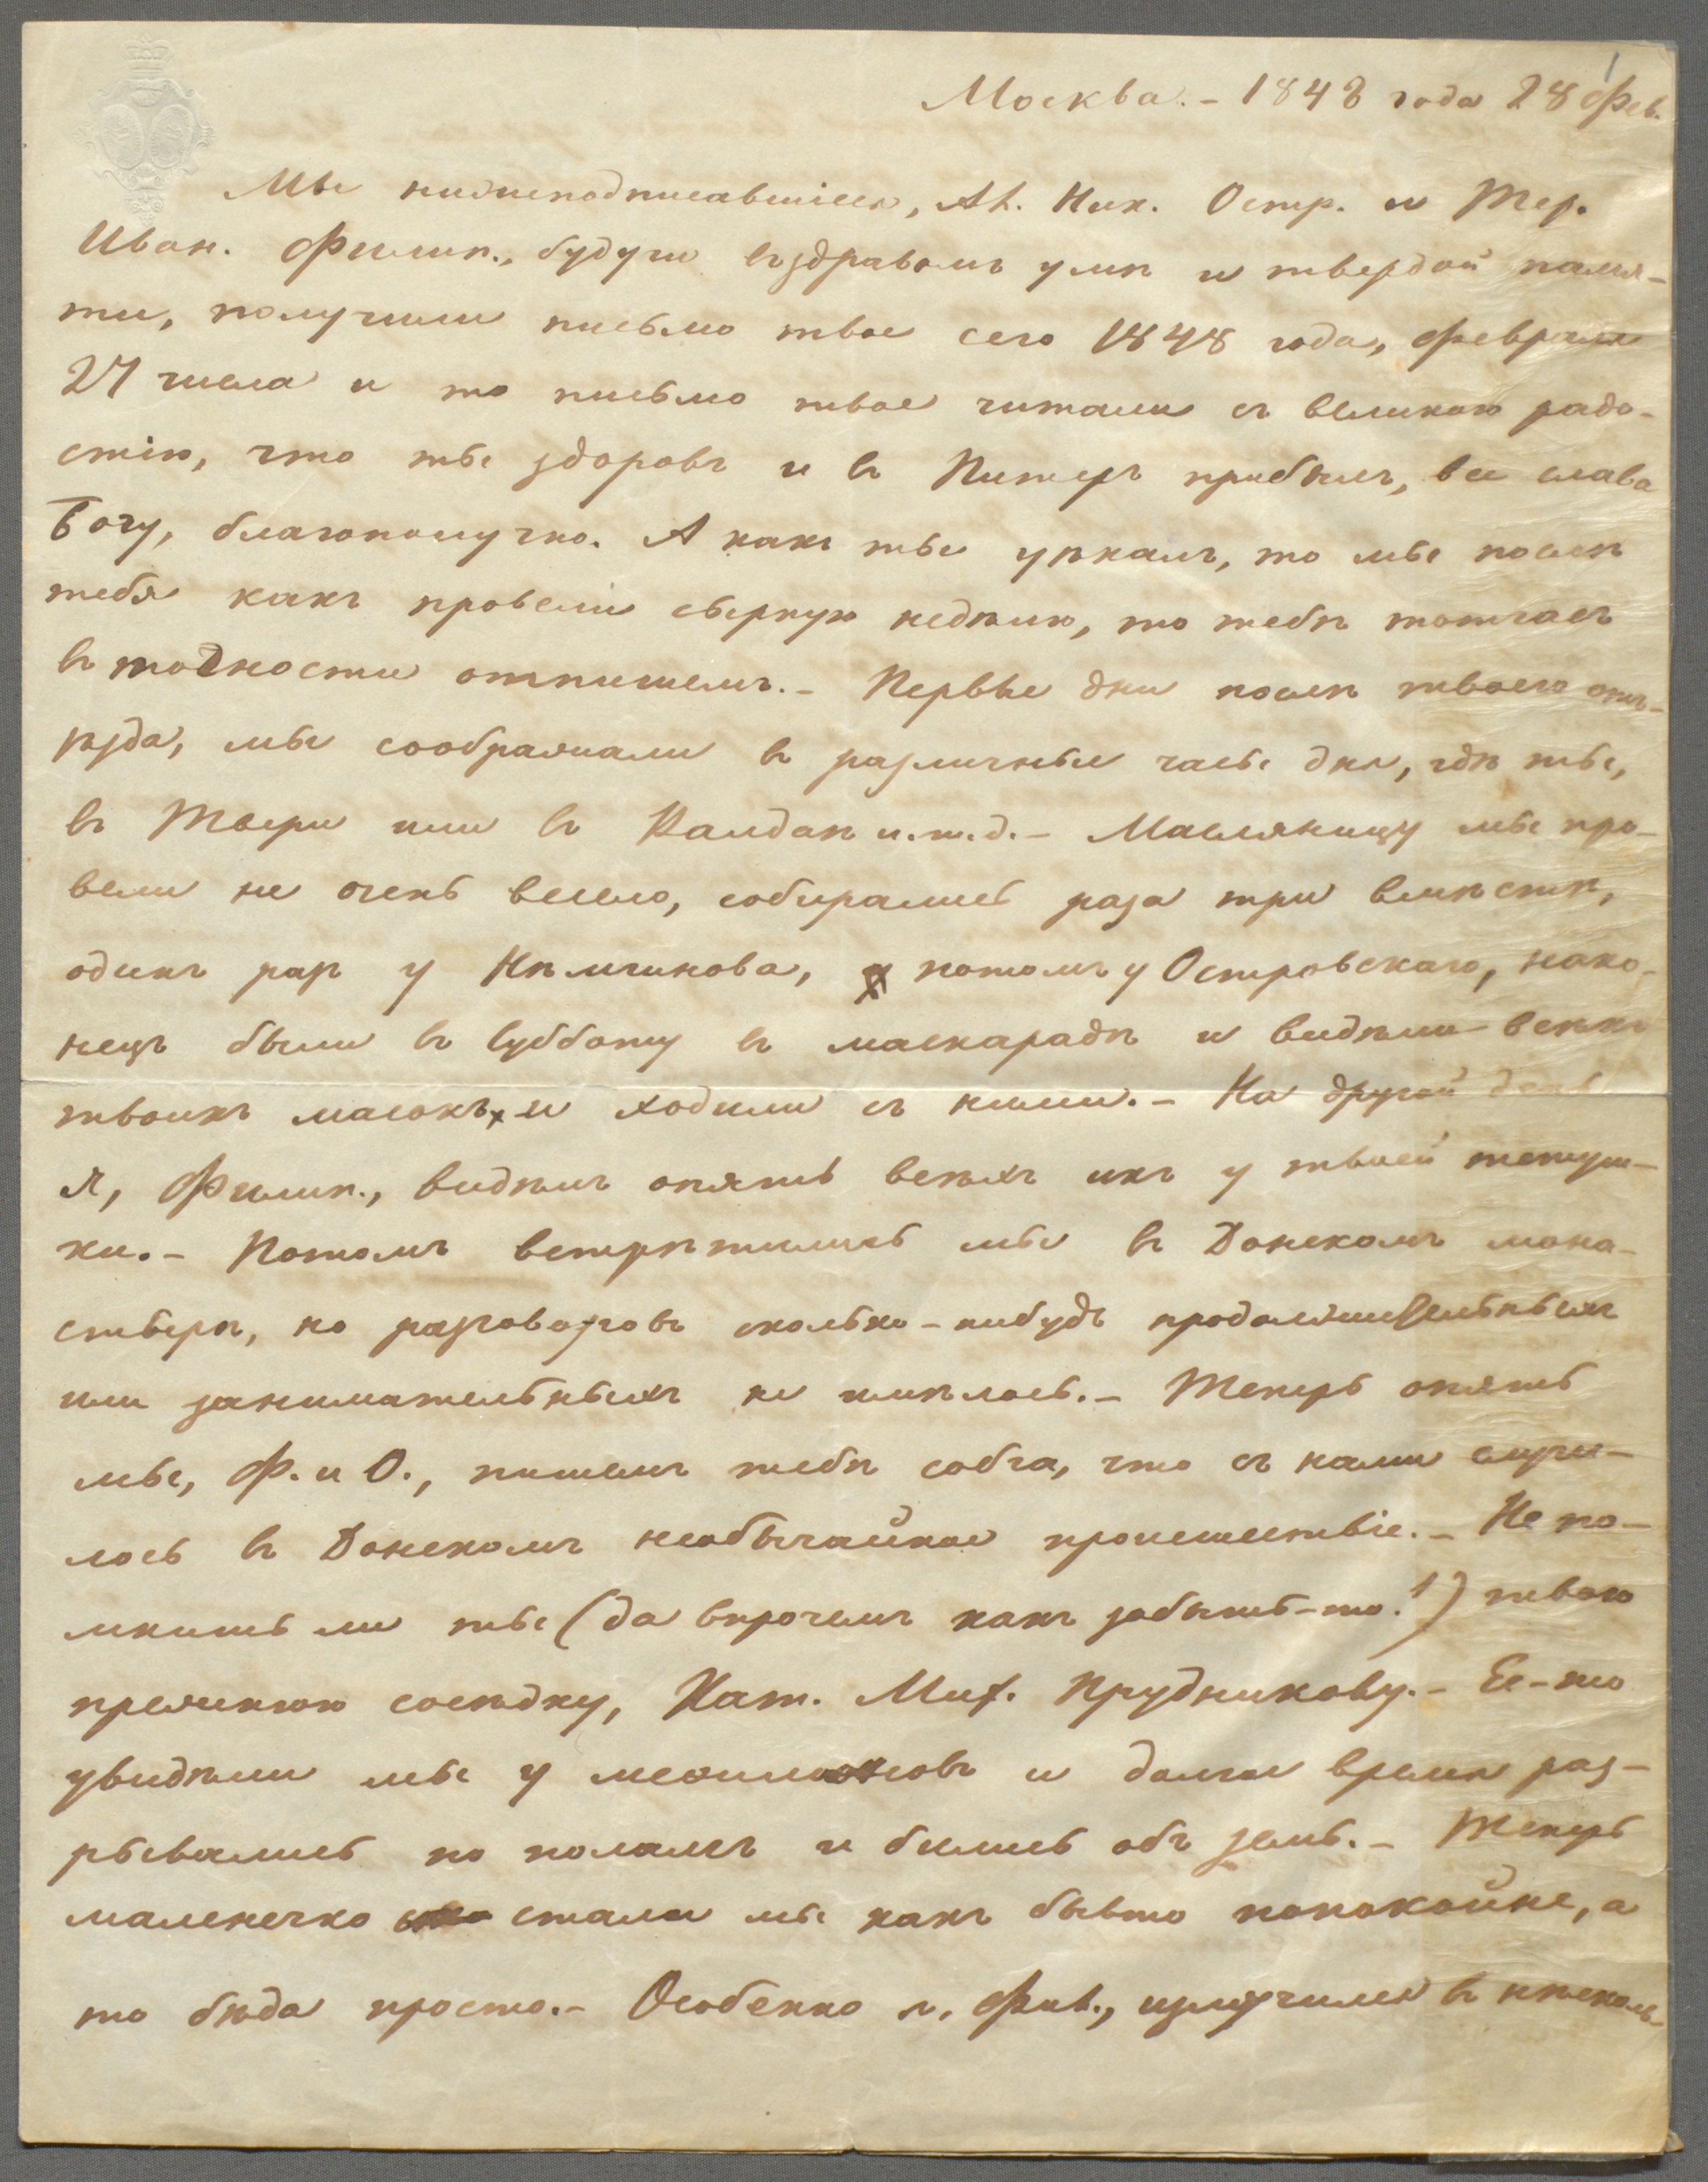 1
Москва. – 1848 года 28 Фев.
Мы нижеподписавшіеся, Ал. Ник. Остр. и Тер.
Иван. Филип., будучи въздравомъ умѣ и твердой памя-
ти, получили письмо твое сего 1848 года, Февраля
27 числа и то письмо твое читали съ великою радо-
стію, что ты здоровъ и въ Питеръ прибылъ, все слава
Богу, благополучно. А какъ ты уѣхалъ, то мы послѣ
тебя какъ провели сырную недѣлю, то тебѣ тотчасъ
въ точности отпишемъ. – Первые дни послѣ твоего отъ-
ѣзда, мы соображали въ различные часы дня, гдѣ ты,
въ Твери или въ Валдаѣ и.т.д. – Масляницу мы про-
вели не очень весело, собирались раза три вмѣстѣ,
одинъ разъ у Нѣмчинова, потомъ у Островскаго, нако-
нецъ были въ Субботу въ маскарадѣ и видѣли всѣхъ
твоихъ масокъ и ходили съ ними. – На другой день
я, Филип., видѣлъ опять всѣхъ ихъ у твоей тетуш-
ки. – Потомъ встрѣтились мы въ Донскомъ мона-
стырѣ, но разговоровъ сколько-нибудь продолжительныхъ
или занимательныхъ не имѣлось. – Теперь опять
мы, Ф. и О., пишемъ тебѣ собча, что съ нами случи-
лось въ Донскомъ необычайное происшествіе. – Не по-
мнишь ли ты (да впрочемъ какъ забыть-то!) твою
прежнюю сосѣдку, Кат. Мих. Прудникову. – Ее-то
увидѣли мы у и долгое время раз-
рывались по поламъ и бились объ земь. – Теперь
маленечко стали мы какъ бы‌то попокойне, а
то бѣда просто. – Особенно я, Фил., измучился въ нѣсколь